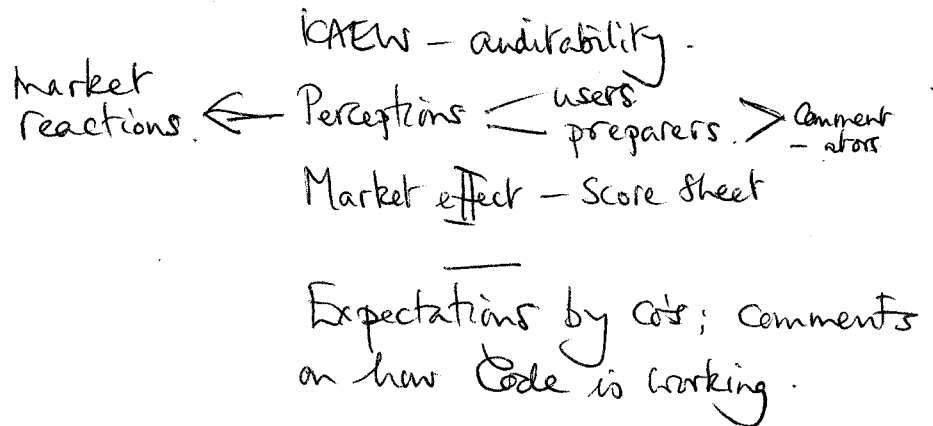 ICAEW – auditability.
market reactions. ← Perceptions < users
preparers. > Comment
– ators
Market effect – Score sheet
Expectations by co's; comments
on how Code is working.